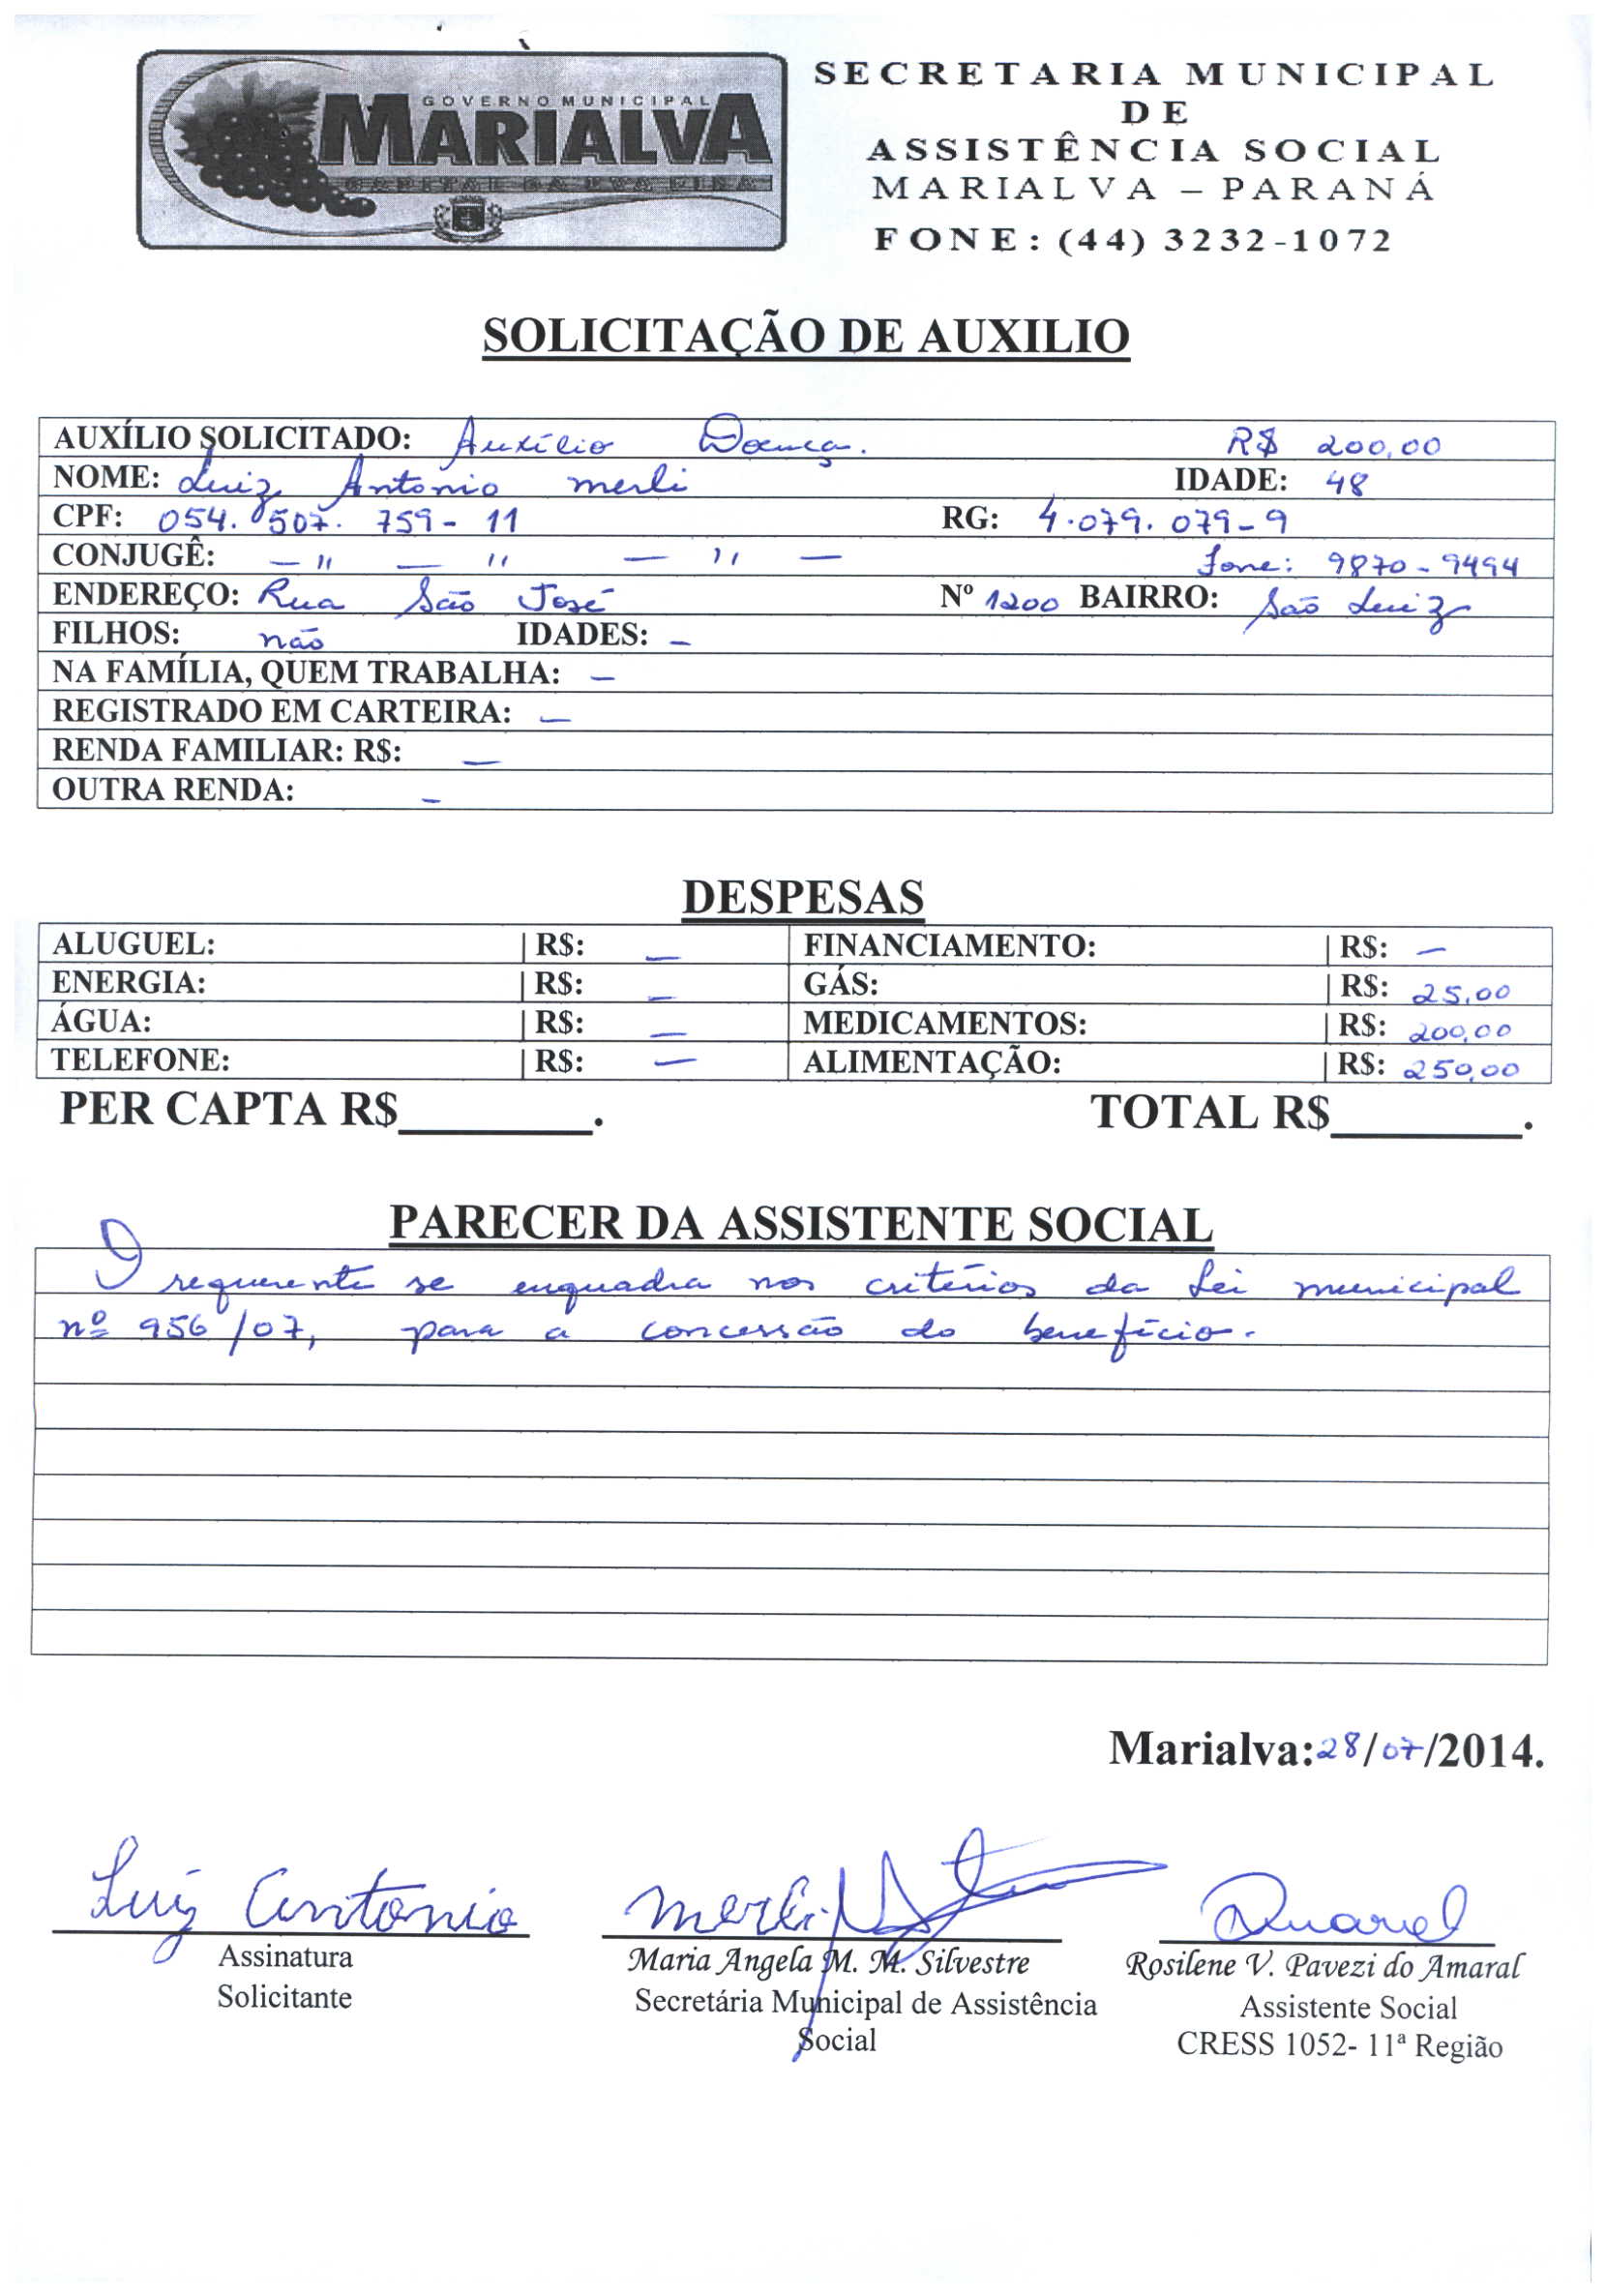 GOVERNO MUNICIPAL
MARIALVA
CAPITAL DA UVA FINA
SECRETARIA MUNICIPAL
DE
ASSISTÊNCIA SOCIAL
MARIALVA – PARANÁ
FONE: (44) 3232-1072
SOLICITAÇÃO DE AUXILIO
AUXÍLIO SOLICITADO: Auxílio Doença. R$ 200,00
NOME: Luiz Antonio merli IDADE: 48
CPF: 054. 507. 759- 11 RG: 4.079. 079-9
CONJUGÊ: — " — " — " — Fone: 9870-9494
ENDEREÇO: Rua São José Nº 1200 BAIRRO: São Luiz
FILHOS: não IDADES: -
NA FAMÍLIA, QUEM TRABALHA: -
REGISTRADO EM CARTEIRA: -
RENDA FAMILIAR: R$: -
OUTRA RENDA: -
DESPESAS
ALUGUEL: | R$: - FINANCIAMENTO: | R$: -
ENERGIA: | R$: - GÁS: | R$: 25,00
ÁGUA: | R$: - MEDICAMENTOS: | R$: 200,00
TELEFONE: | R$: - ALIMENTAÇÃO: | R$: 250,00
PER CAPTA R$________. TOTAL R$________.
PARECER DA ASSISTENTE SOCIAL
O requerente se enquadra nos critérios da Lei municipal
nº 956/07, para a concessão do benefício.
Marialva:28/07/2014.
Luiz Antonio merli
Assinatura
Solicitante
Maria Angela M. M. Silvestre
Secretária Municipal de Assistência
Social
Rosilene V. Pavezi do Amaral
Assistente Social
CRESS 1052- 11ª Região